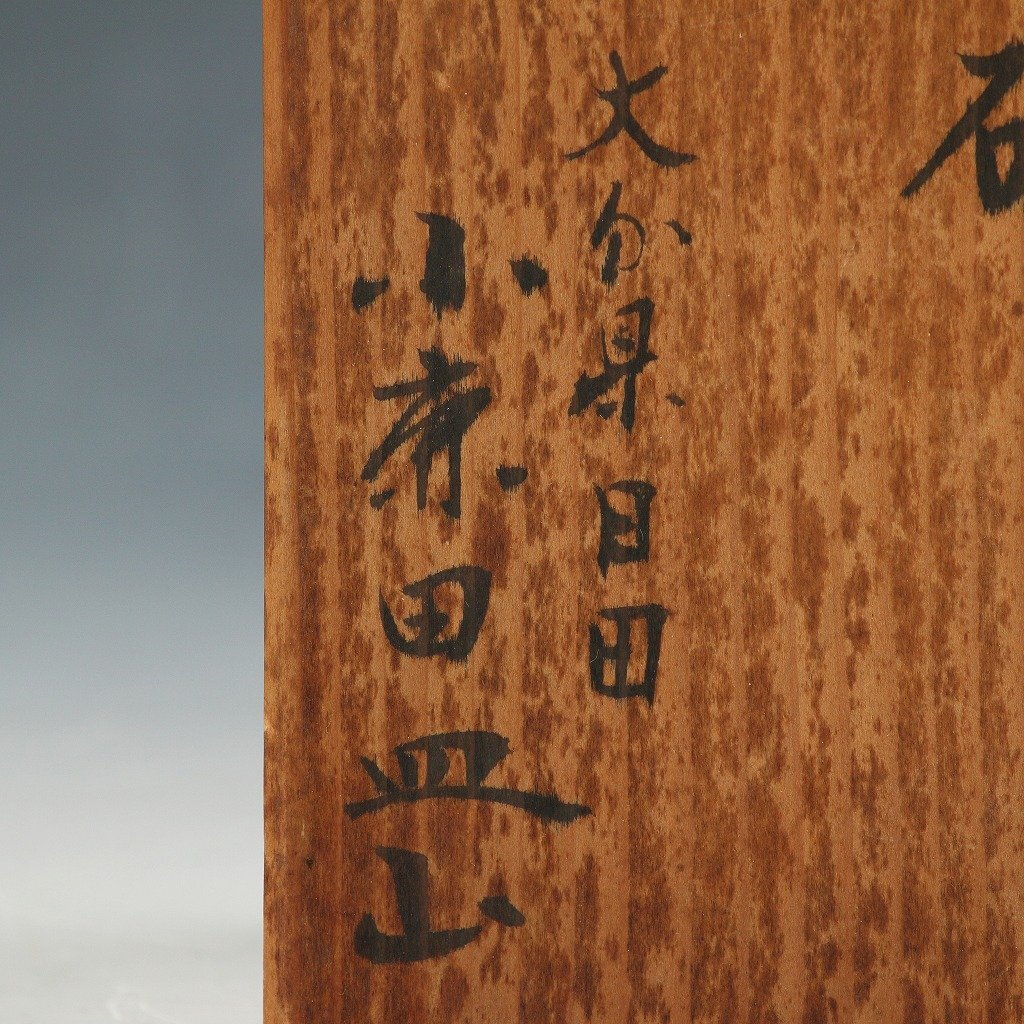 大分県日田
小鹿田皿山